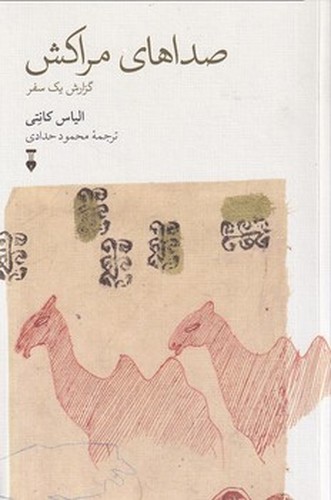 صداهای مراکش
گزارش یک سفر
الیاس کانِتی
ترجمهٔ محمود حدادی